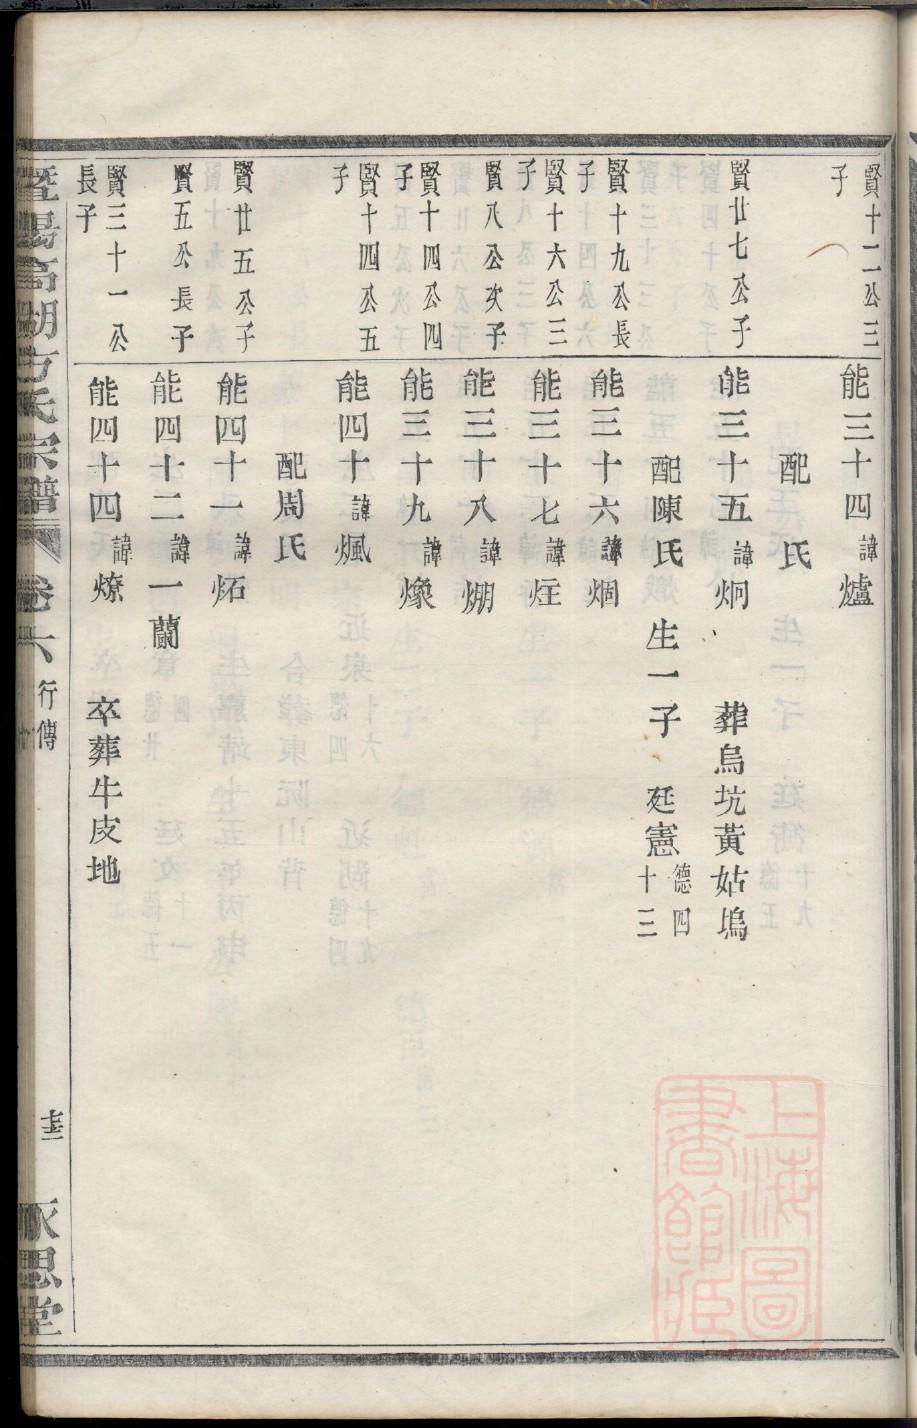 賢十二公三子
能三十四 諱爐
配 氏
賢廿七公子
能三十五 諱炯 葬烏坑黃姑塢
配陳氏 生一子 廷憲 德四十三
賢十九公長子
能三十六 諱烟
賢十六公三子
能三十七 諱炷
賢八公次子
能三十八 諱焩
賢十四公四子
能三十九 諱燺
賢十四公五子
能四十 諱煈
配周氏
賢廿五公子
能四十一 諱炻
賢五公長子
能四十二 諱一蘭
賢三十一公長子
能四十四 諱燎 卒葬牛皮地
暨陽高湖方氏宗譜 卷六 行傳
永思堂
上海圖書館